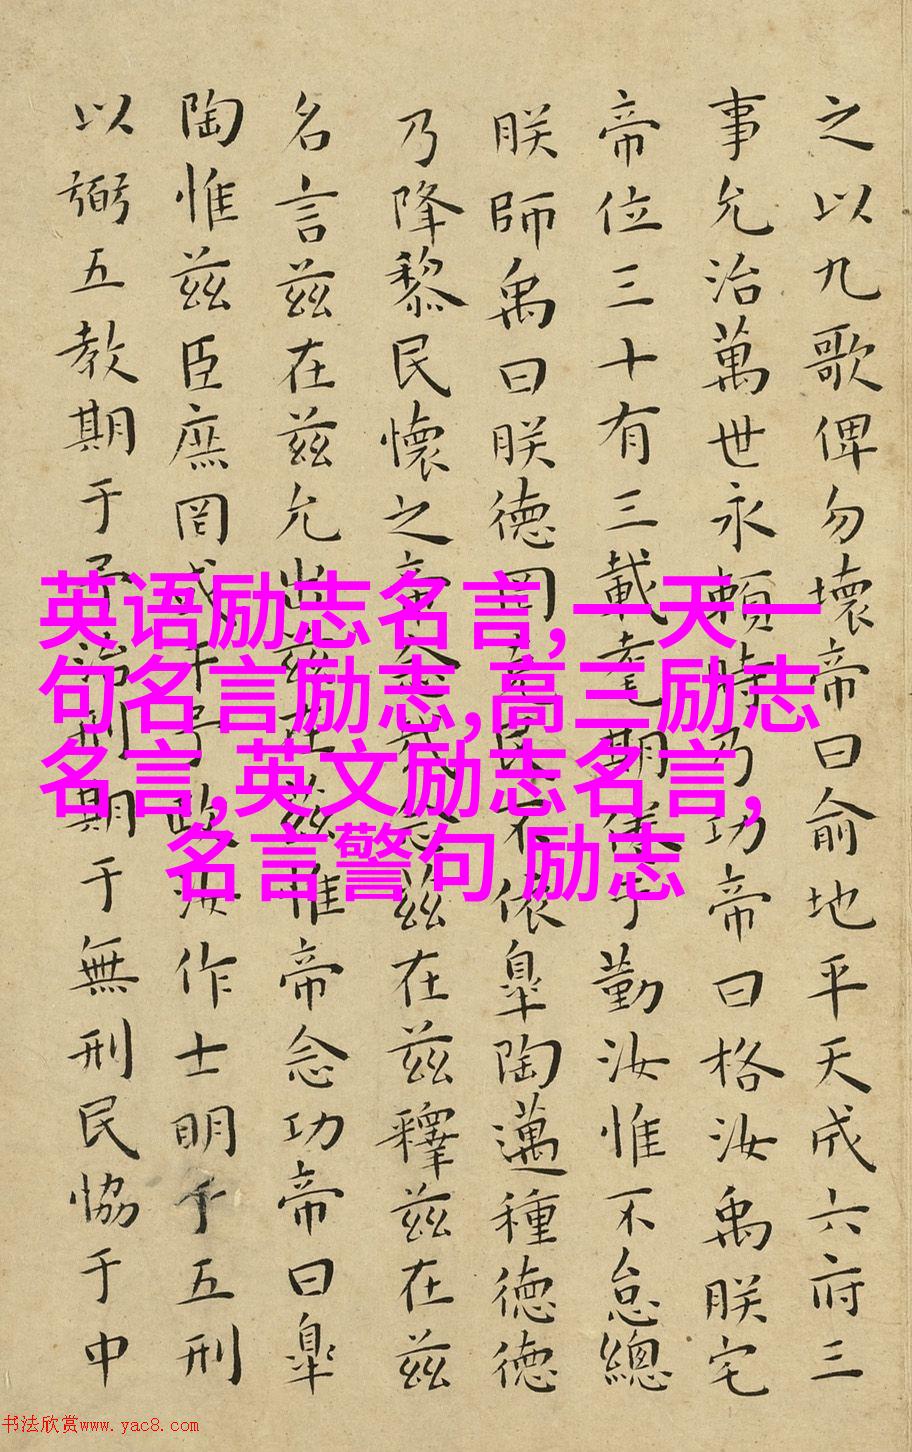 之以九歌俾勿壞帝曰俞地平天成六府三
事允治萬世永賴時乃功帝曰格汝禹朕宅
帝位三十有三載耄期倦于勤汝惟不怠總
朕師禹曰朕德罔克民不依皐陶邁種德德
乃降黎民懷之帝念哉念茲在茲釋茲在茲
名言茲在茲允出茲在茲惟帝念功帝曰皐
陶惟茲臣庶罔或干予政汝作士明于五刑
以弼五教期于予治刑期于無刑民協于中
英语励志名言,一天一
句名言励志,高三励志
名言,英文励志名言,
名言警句 励志
书法欣赏www.yac8.com